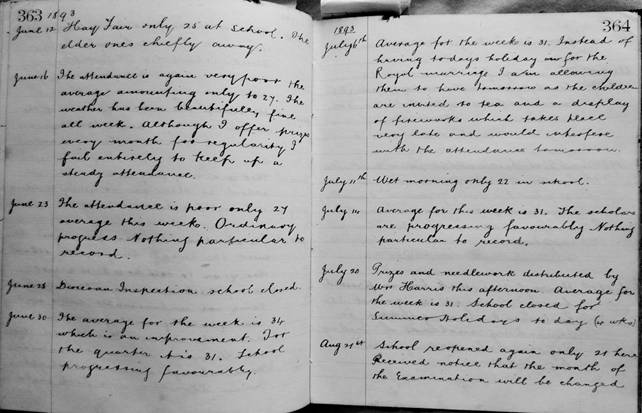 363
1893
June 12 Hay Fair only 25 at School. The
elder ones chiefly away.
June 16 The attendance is again very poor the
average amounting only to 27. The
weather has been beautifully fine
all week. Although I offer prizes
every month for regularity I
fail entirely to keep up a
steady attendance.
June 23 The attendance is poor only 27
average this week. Ordinary
progress Nothing particular to
record.
June 28 Diocesan Inspection school closed.
June 30 The average for the week is 34
which is an improvement. For
the quarter it is 31. School
progressing favourably.
364
1893
July 6th Average for the week is 31. Instead of
having todays holiday for the
Royal marriage I am allowing
them to have tomorrow as the children
are invited to tea and a display
of fireworks which takes place
very late and would interfere
with the attendance tomorrow.
July 11th Wet morning only 22 in school.
July 14 Average for this week is 31. The scholars
are progressing favourably Nothing
particular to record.
July 20 Prizes and needlework distributed by
Mrs Harris this afternoon. Average for
the week is 31. School closed for
Summer Holidays to day ( wks)
Aug 21st School reopened again only 21 here
Received notice that the month of
the Examination will be changed